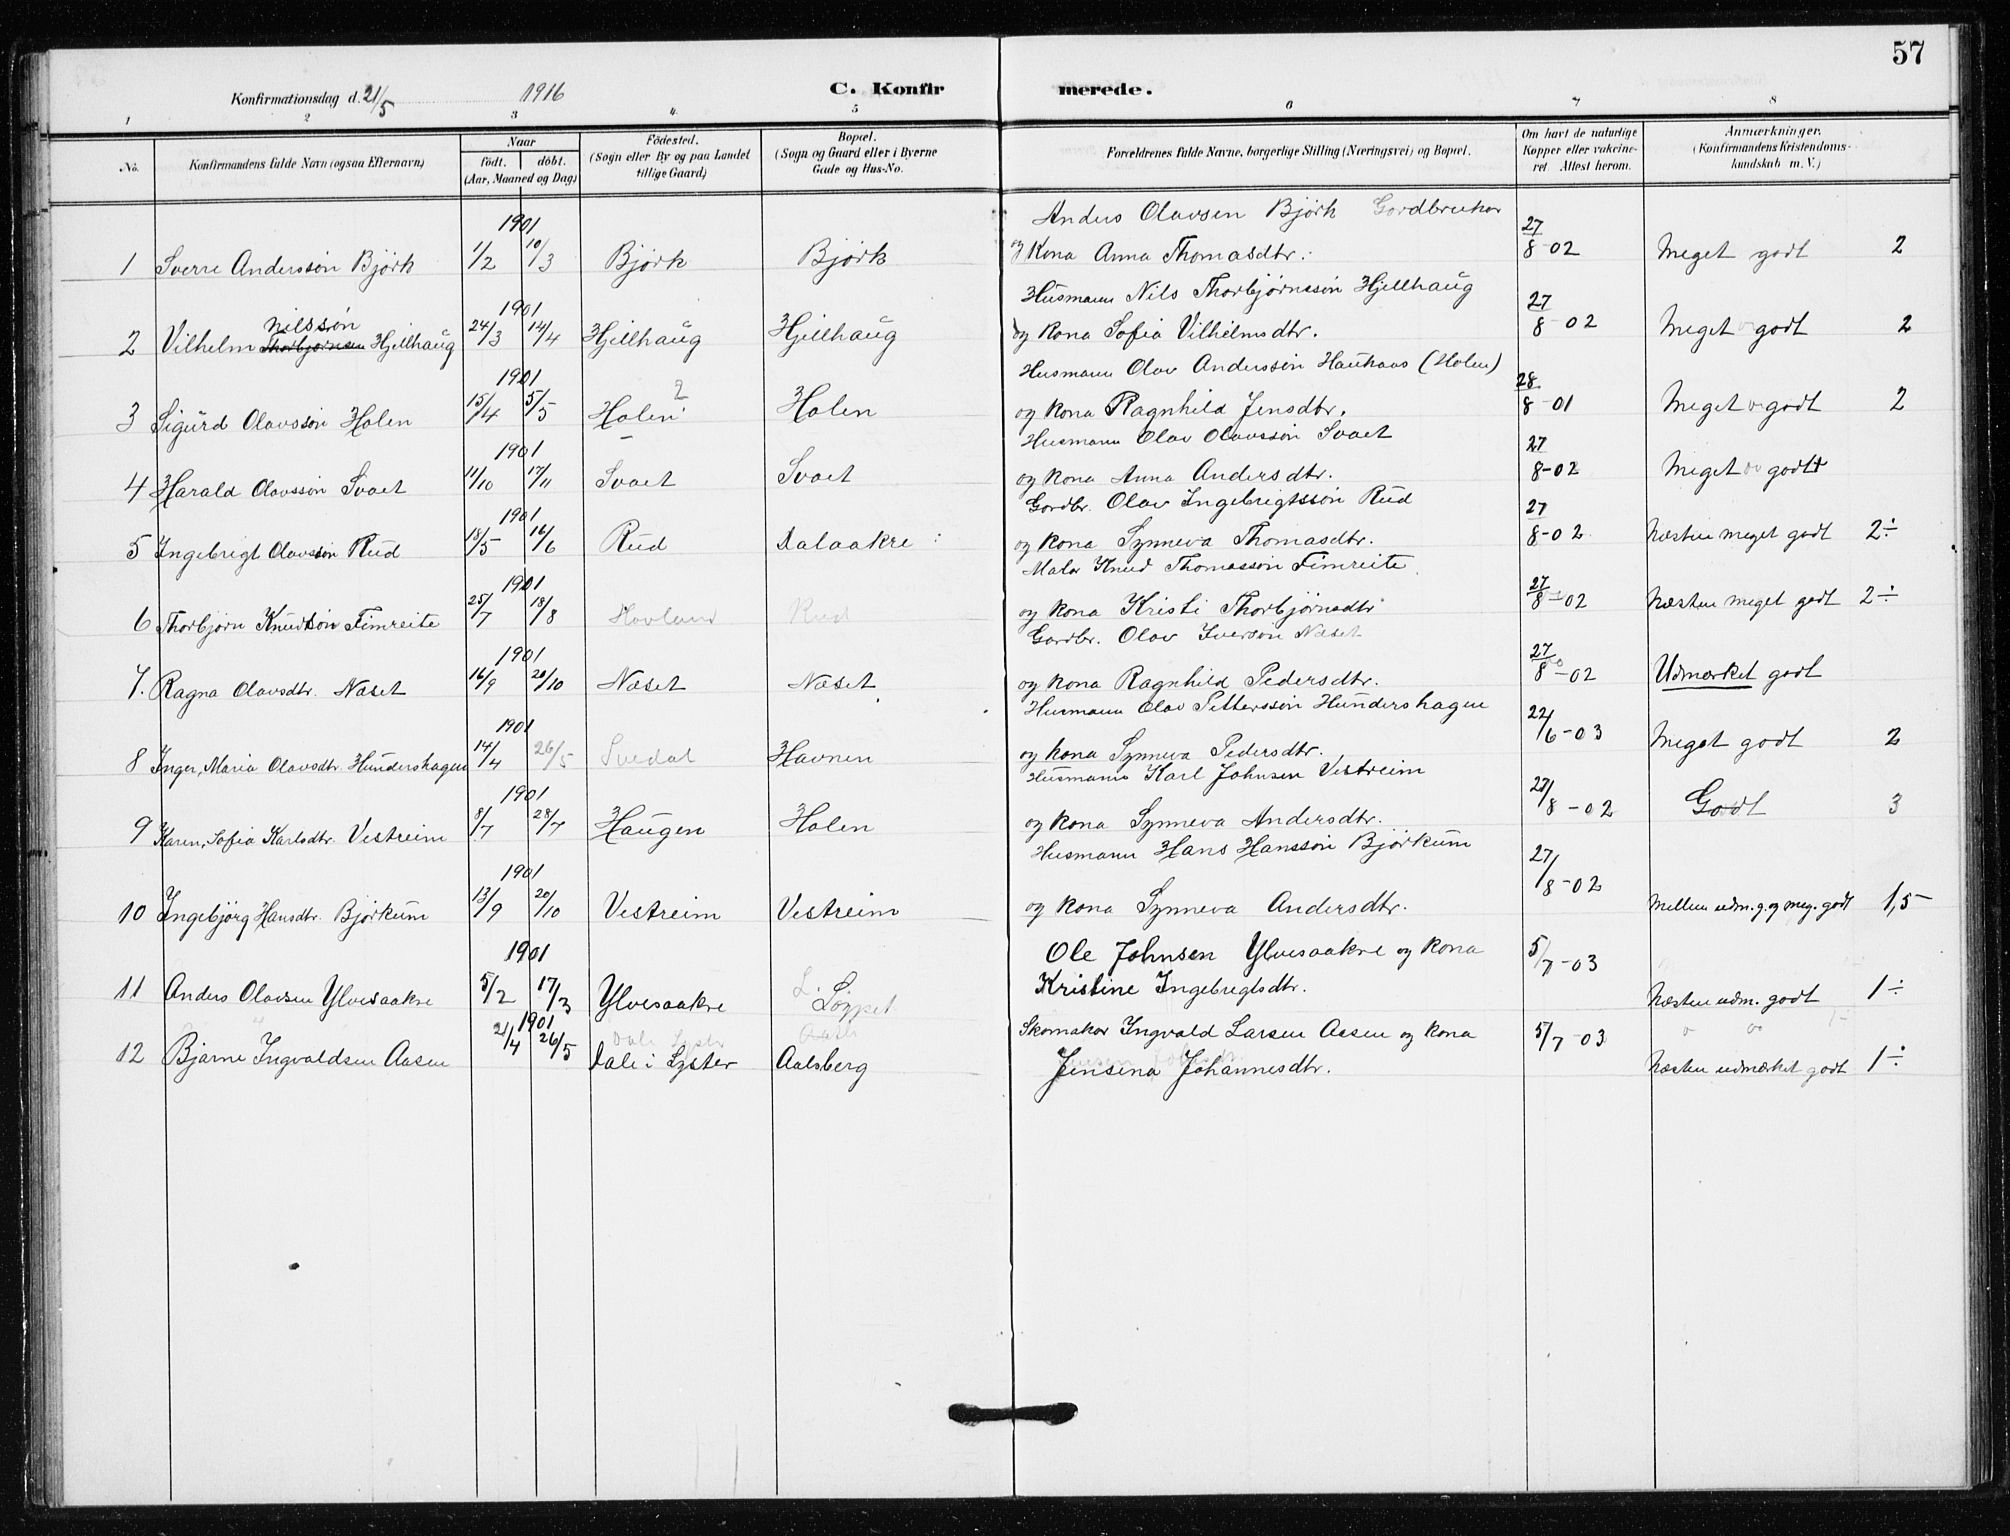 57
Konfirmationsdag d. 21/5 1916 C. Konfir merede.
1 2 3 4 5 6 7 8
No. Konfirmandens fulde Navn (ogsaa Efternavn)
Naar
født. døbt.
(Aar, Maaned og Dag)
Födested.
(Sogn eller By og paa Landet
tillige Gaard)
Bopæl.
(Sogn og Gaard eller i Byerne
Gade og Hus-No.
Forældrenes fulde Navne, borgerlige Stilling (Næringsvei) og Bopæl.
Om havt de naturlige
Kopper eller vakcine-
ret Attest herom.
Anmærkninger.
(Konfirmandens Kristendoms-
kundskab m. V.)
1901 Anders Olavsen Björk Gardbrukar 27
1 Sverre Anderssøn Björk 1/2 10/3 Björk Björk og Kona Anna Thomasdtr. 8-02 Meget godt 2
Nilssøn 1901 Husmann Nils Thorbjørnssøn Hjellhaug 27
2 Vilhelm Thorbjørnsen Hjellhaug 24/3 14/4 Hjellhaug Hjellhaug og kona Sofia Vilhelmsdtr. 8-02 Meget godt 2
1901 2 Husmann Olav Anderssøn Haukaas (Holen) 28
3 Sigurd Olavssøn Holen 15/4 5/5 Holen Holen og kona Ragnhild Jensdtr. 8-01 Meget godt 2
1901 Husmann Olav Olavssøn Svaet 27
4 Harald Olavssøn Svaet 11/10 17/11 Svaet Svaet og kona Anna Andersdtr. 8-02 Meget godt
1901 Gardbr. Olav Ingebrigtssøn Rud 27
5 Ingebrigt Olavssøn Rud 18/5 16/6 Rud Dalaakre og kona Synneva Thomasdtr. 8-02 Næsten meget godt 2÷
1901 Malar Knud Thomassøn Fimreite 27
6 Thorbjørn Knudsøn Fimreite 25/7 18/8 Hovland Rud og kona Kristi Thorbjørnsdtr 8-02 Næsten meget godt 2÷
1901 Gardbr. Olav Iversøn Næset 27
7. Ragna Olavsdtr. Næset 16/9 20/10 Næset Næset og kona Ragnhild Pedersdtr. 8-02 Udmærket godt
1901 Husmann Olav Pettersson Hundershagen 22/6-03
8 Inger, Maria Olavsdtr. Hundershagen 14/4 26/5 Svedal Havnen og kona Synneva Pedersdtr. Meget godt 2
1901 Husmann Karl Johnsen Vestreim 27/8-02
9 Karen, Sofia Karlsdtr. Vestreim 8/7 28/7 Haugen Holen og kona Synneva Andersdtr. Godt 3
1901 Husmann Hans Hanssøn Björkum 27/8-02
10 Ingebjörg Hansdtr. Björkum 13/9 20/10 Vestreim Vestreim og kona Synneva Andersdtr. Mellem udm. g. og meg. godt 1,5
1901 Ole Johnsen Ylvesaakre og kona 5/7-03
11 Anders Olavsen Ylvesaakre 5/2 17/3 Ylvesaakre Kristine Ingebregtsdtr. Næsten udm. godt 1÷
1901 Dale Lyster Skomakar Ingvald Larsen Aasen og kona 5/7-03
12 Bjarne Ingvaldsen Aasen 21/4 26/5 Dale i Lyster Aalsberg Jensina Johannesdtr. Næsten udmærket godt 1÷